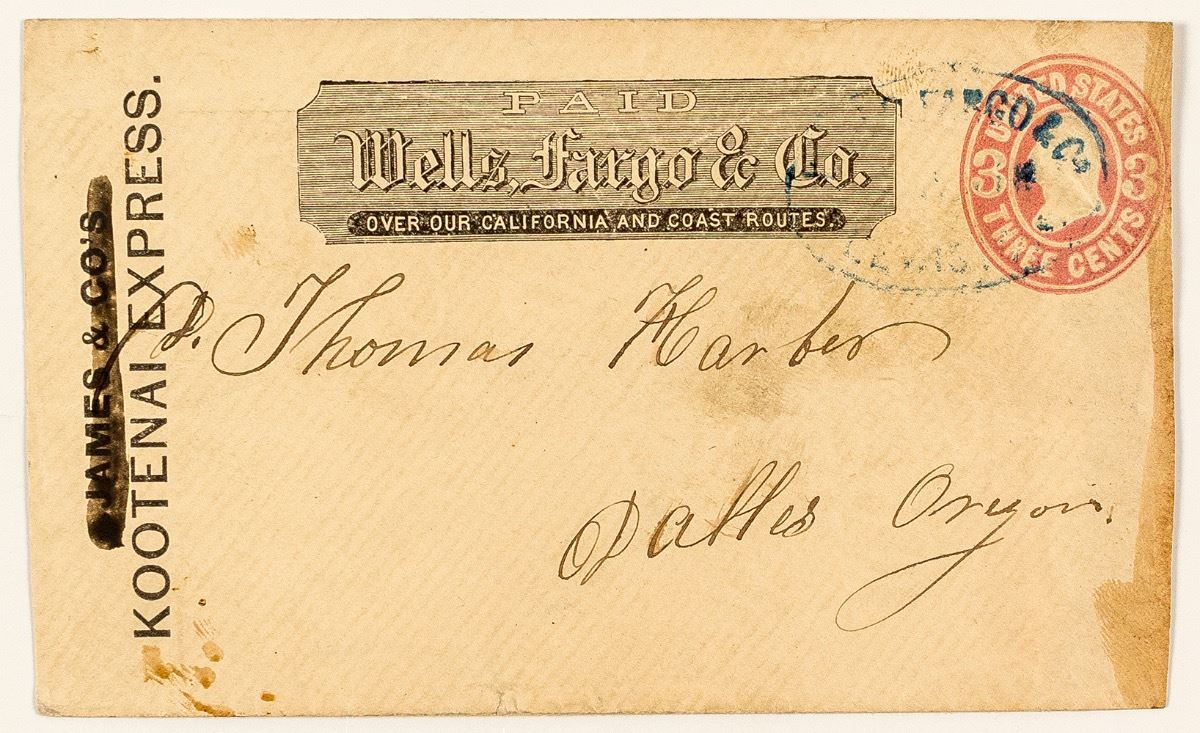 PAID
Wells, Fargo & Co.
OVER OUR CALIFORNIA AND COAST ROUTES.
FARGO & Co
UNITED STATES
3 3
THREE CENTS
JAMES & CO'S
KOOTENAI EXPRESS.
Thomas Harber
Dalles Oregon.